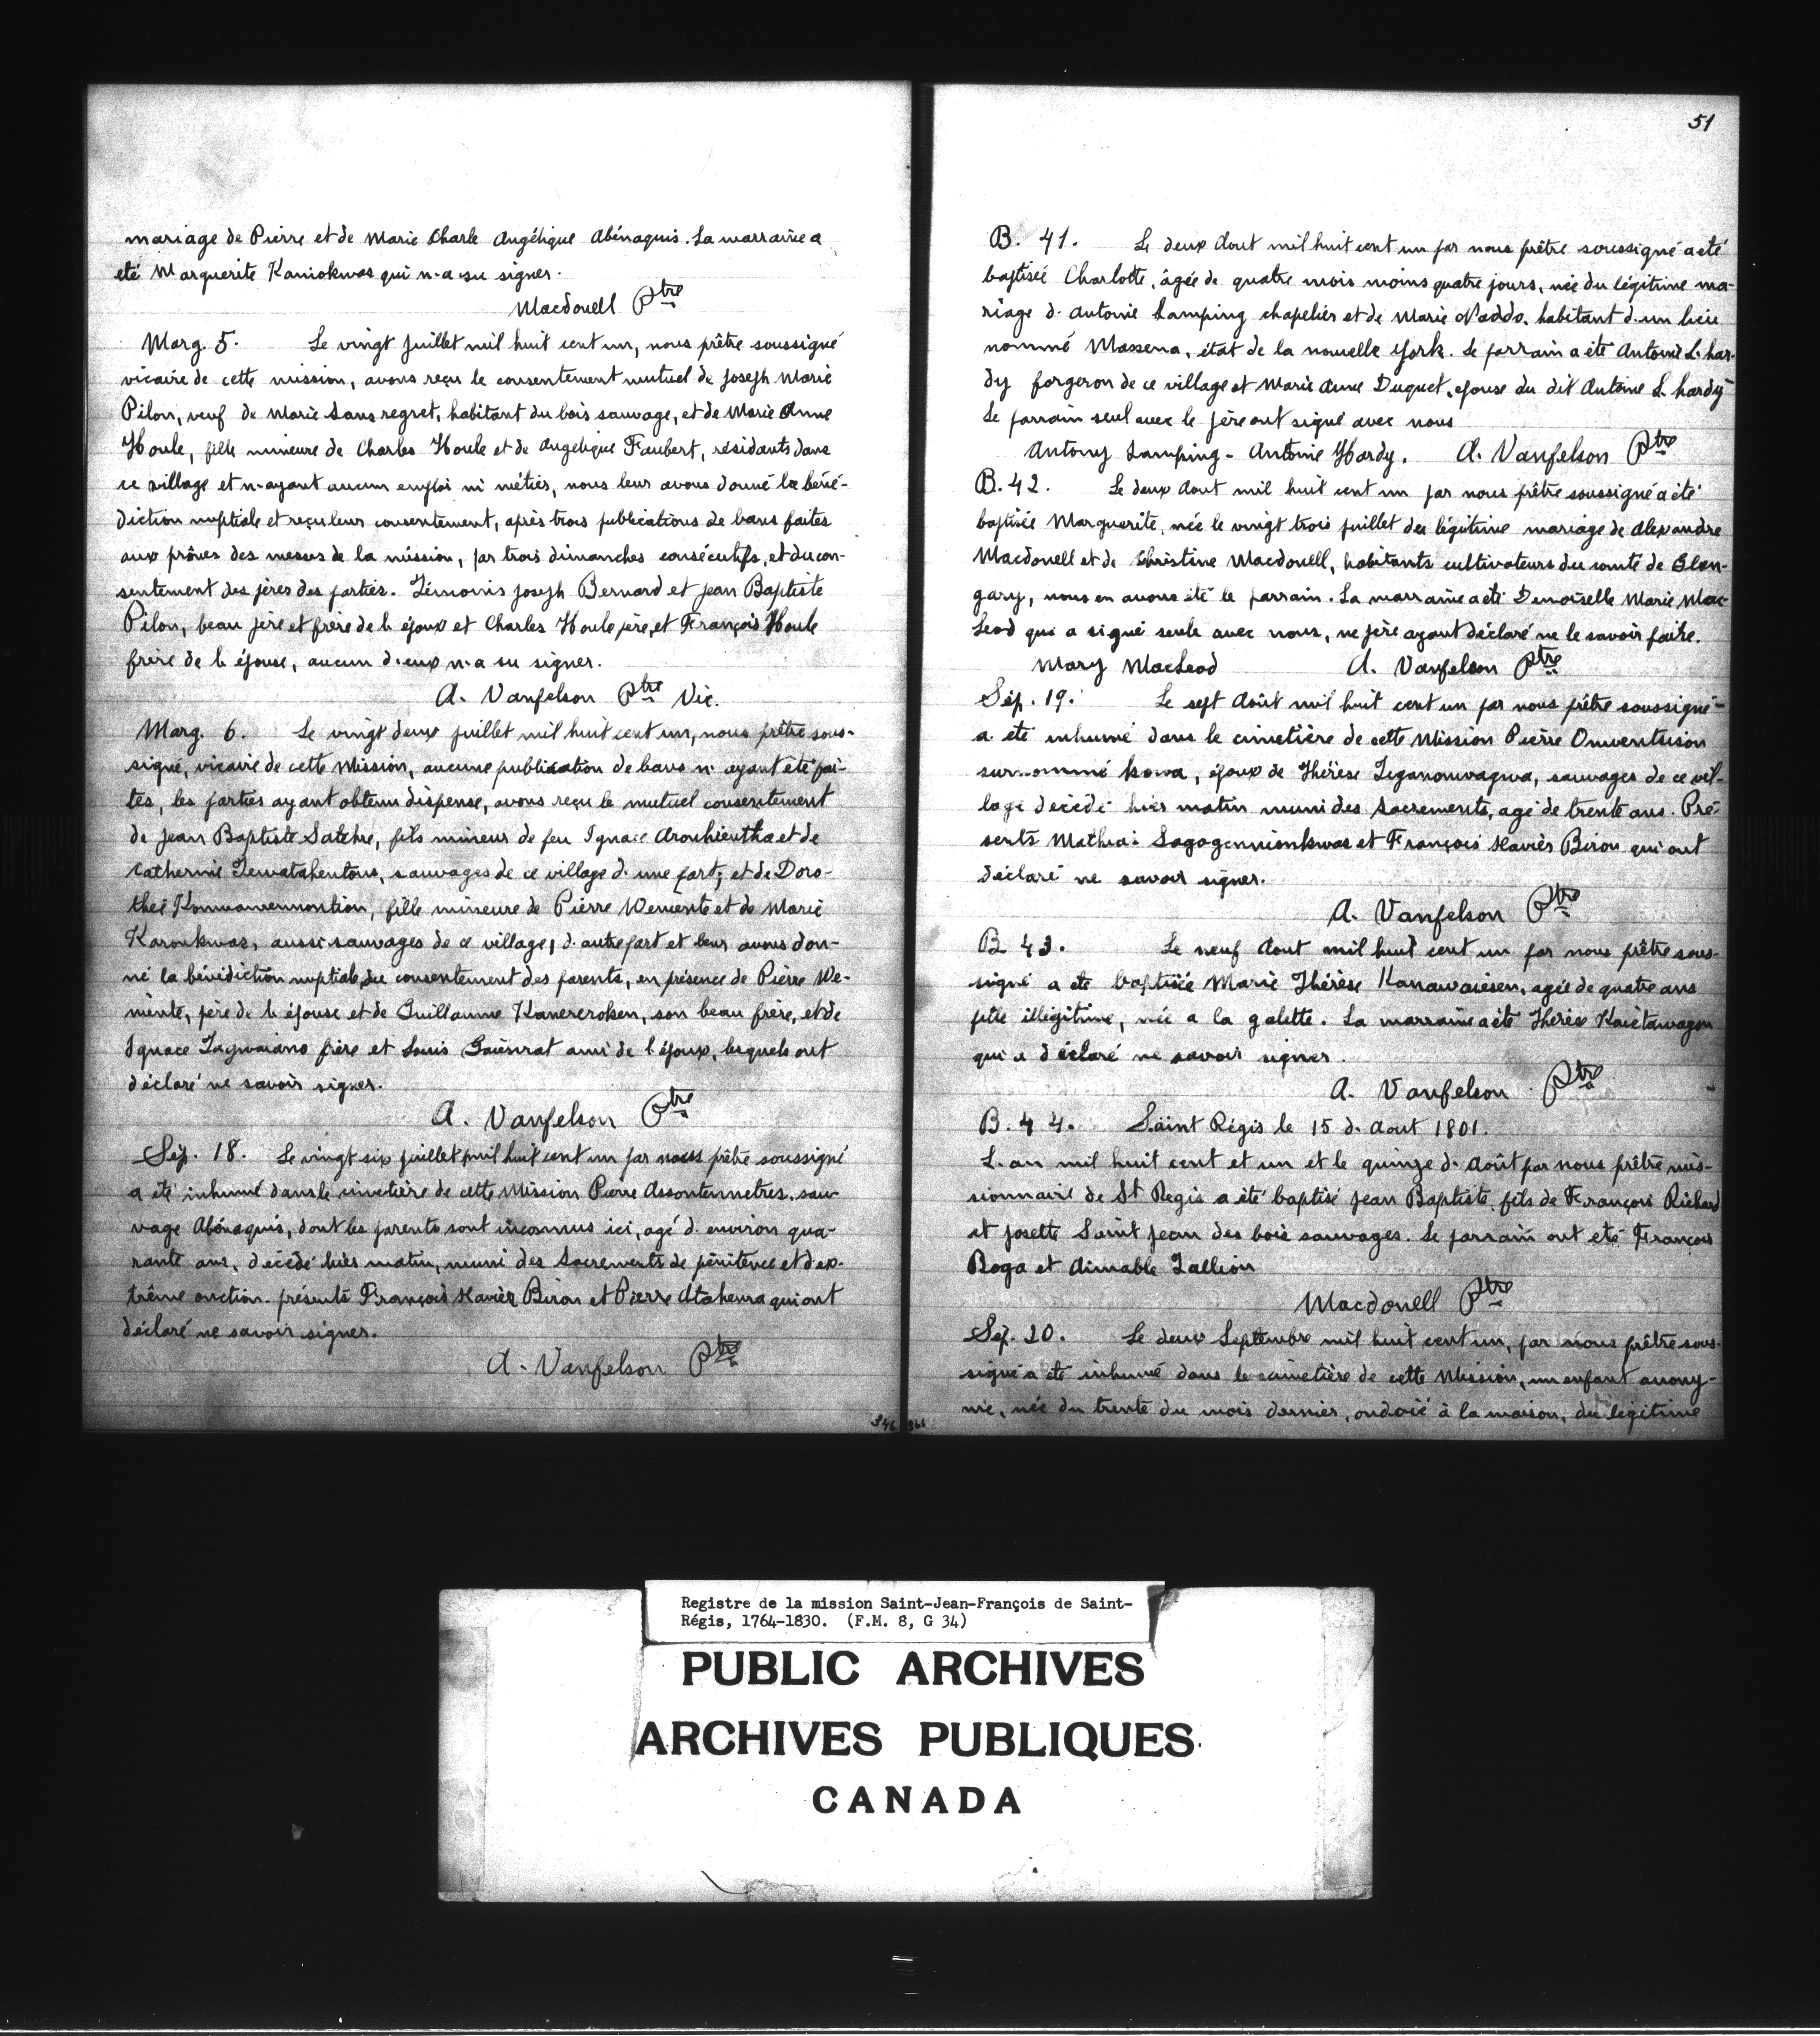 mariage de Pierre et de Marie Charle Angélique Abénaquis. La marraine a
été Marguerite Kaniokwas qui n'a su signer.
Macdonell Ptre
Marg. 5. Le vingt juillet mil huit cent un, nous prêtre soussigné
vicaire de cette mission, avons reçu le consentement mutuel de Joseph Marie
Pilon, veuf de Marie Sansregret, habitant du bois sauvage, et de Marie Anne
Houle, fille mineure de Charles Houle et de Angélique Faubert, résidants dans
ce village et n'ayant aucun emploi ni métier, nous leur avons donné la béné-
diction nuptiale et reçu leur consentement, après trois publications de bans faites
aux prônes des messes de la mission, par trois dimanches consécutifs, et du con-
sentement des pères des parties. Témoins Joseph Bernard et Jean Baptiste
Pilon, beau père et frère de l'époux et Charles Houle père, et François Houle
frère de l'épouse, aucun d'eux n'a su signer.
A. Vanfelson Ptre Vic.
Marg. 6. Le vingt deux juillet mil huit cent un, nous prêtre sous-
signé, vicaire de cette Mission, aucune publication de bans n'ayant été fai-
tes, les parties ayant obtenu dispense, avons reçu le mutuel consentement
de Jean Baptiste Satehre, fils mineur de feu Ignace Aronhientha et de
Catherine Tewatahentons, sauvages de ce village d'une part; et de Doro-
theé Konwawennontion, fille mineure de Pierre Wemente et de Marie
Karonkwas, aussi sauvages de ce village, d'autre part et leur avons don-
né la bénédiction nuptiale du consentement des parents, en présence de Pierre We-
mente, père de l'épouse et de Guillaume Kanereroken, son beau frère, et de
Ignace Tagwaiano frère et Louis Gaienrat ami de l'époux, lesquels ont
déclaré ne savoir signer.
A. Vanfelson Ptre
Sép. 18. Le vingt six juillet mil huit cent un par nous prêtre soussigné
a été inhumé dans le cimetière de cette Mission Pierre Assontennetres, sau-
vage Abénaquis, dont les parents sont inconnus ici, agé d'environ qua-
rante ans, décédé hier matin, muni des Sacrements de pénitence et d'ex-
trême onction. présents François Xavier Biron et Pierre Atahenra qui ont
déclaré ne savoir signer.
A. Vanfelson Ptre
346
51
B. 41. Le deux Aout mil huit cent un par nous prêtre soussigné a été
baptiseé Charlotte, âgée de quatre mois moins quatre jours, née du légitime ma-
riage d'Antoine Lamping chapelier et de Marie Naddo, habitant d'un lieu
nommé Massena, état de la nouvelle York. Le parrain a été Antoine L'har-
dy forgeron de ce village et Marie Anne Duquet, epouse du dit Antoine L'hardy
Le parrain seul avec le père ont signé avec nous
Antony Lamping - Antoine Hardy. A. Vanfelson Ptre
B. 42. Le deux Aout mil huit cent un par nous prêtre soussigné a été
baptisée Marguerite, née le vingt trois juillet du légitime mariage de Alexandre
Macdonell et de Christine Macdonell, habitants cultivateurs du comté de Glen-
gary, nous en avons été le parrain. La marraine a été Demoiselle Marie Mac-
Leod qui a signé seule avec nous, ne père ayant déclaré ne le savoir faire.
Mary MacLeod A. Vanfelson Ptre
Sép. 19. Le sept Août mil huit cent un par nous prêtre soussigné
a été inhumé dans le cimetière de cette Mission Pierre Onwentsison
surnommé kowa, époux de Thérèse Teganonwagwa, sauvages de ce vil-
lage décédé hier matin muni des sacrements, agé de trente ans. Pré-
sents Mathias Sagogennionkwas et François Xavier Biron qui ont
déclaré ne savoir signer.
A. Vanfelson Ptre
B 43. Le neuf Aout mil huit cent un par nous prêtre sous-
signé a été baptisée Marie Thérèse Kanawaiesen, agée de quatre ans
fille illégitime, née a la galette. La marraine a été Thérèse Kaietawagon
qui a déclaré ne savoir signer.
A. Vanfelson Ptre
B. 44. Saint Régis le 15 d'Aout 1801.
L'an mil huit cent et un et le quinze d'Août par nous prêtre mis-
sionnaire de St Regis a été baptisé Jean Baptiste, fils de François Richard
et Josette Saint Jean des bois sauvages. Le parrain ont été François
Roga et Aimable Tallion
Macdonell Ptre
Sép. 20. Le deux Septembre mil huit cent un, par nous prêtre sous-
signé a été inhumé dans le cimetière de cette Mission, un enfant anony-
me, née du trente du mois dernier, ondoié à la maison, du légitime
Registre de la mission Saint-Jean-François de Saint-
Régis, 1764-1830. (F.M. 8, G 34)
PUBLIC ARCHIVES
ARCHIVES PUBLIQUES
CANADA